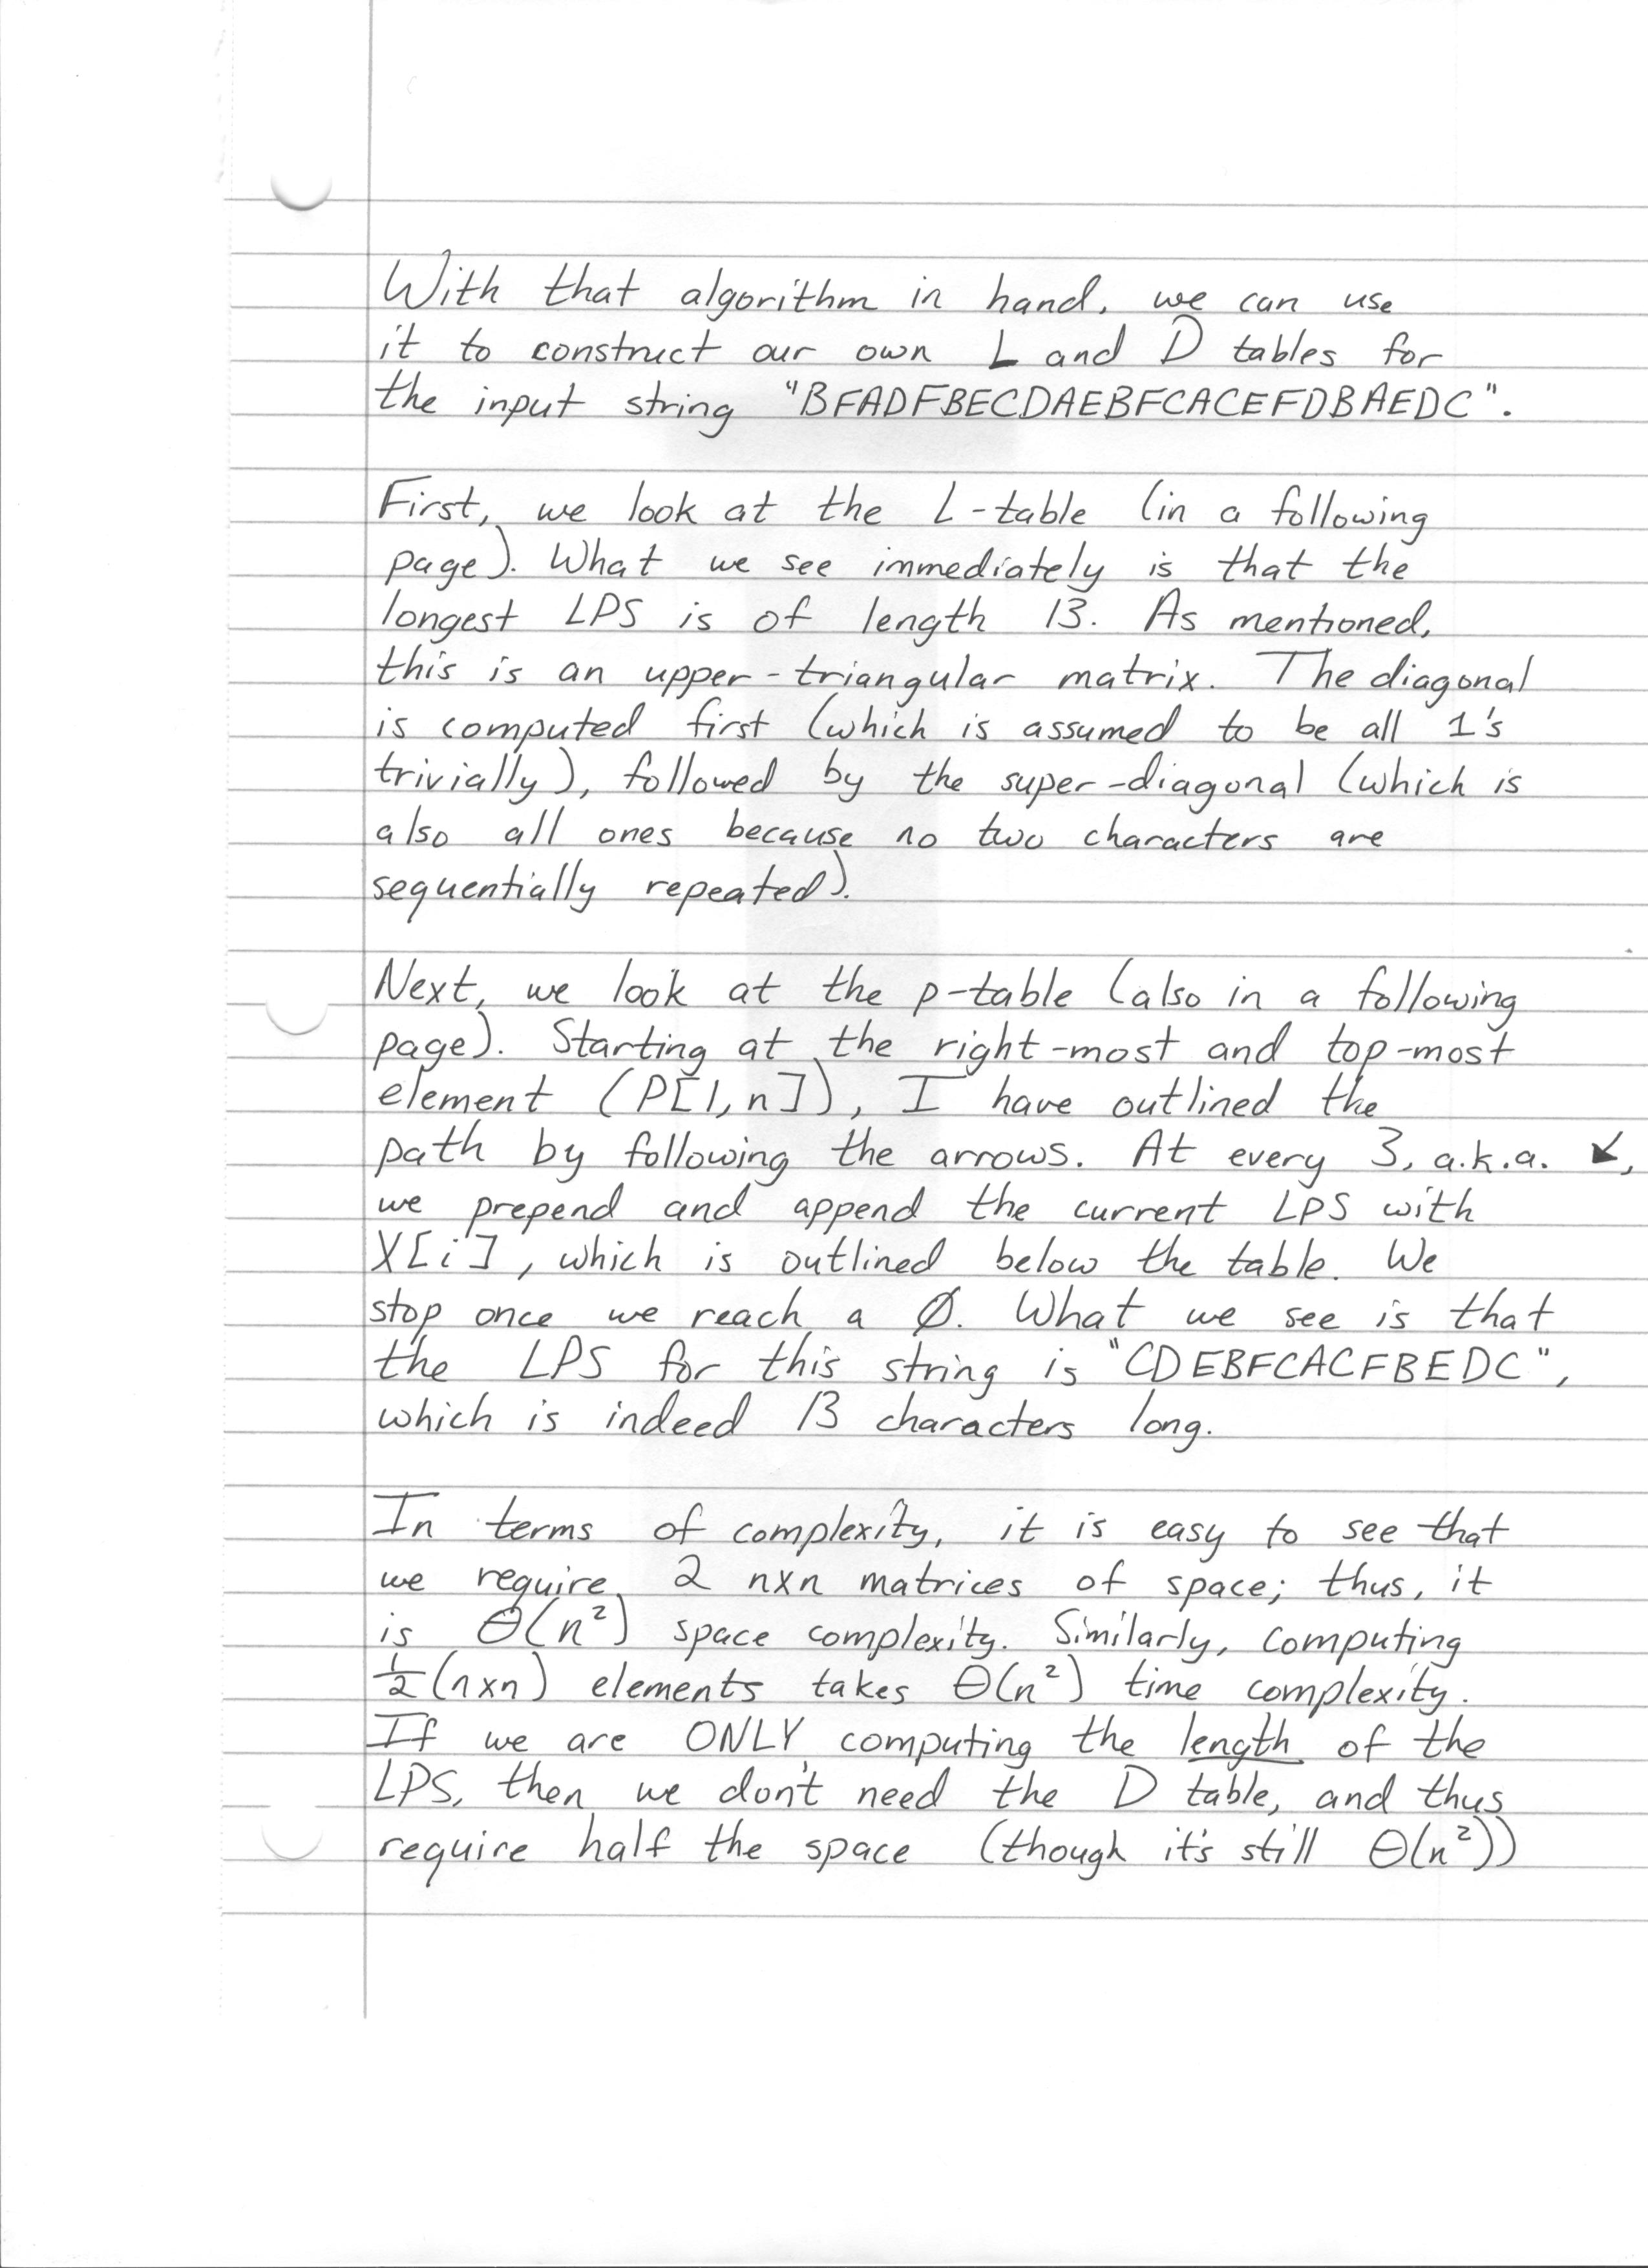 With that algorithm in hand, we can use
it to construct our own L and D tables for
the input string "BFADFBECDAEBFCACEFDBAEDC".
First, we look at the L-table (in a following
page). What we see immediately is that the
longest LPS is of length 13. As mentioned,
this is an upper-triangular matrix. The diagonal
is computed first (which is assumed to be all 1's
trivially), followed by the super-diagonal (which is
also all ones because no two characters are
sequentially repeated).
Next, we look at the p-table (also in a following
page). Starting at the right-most and top-most
element (P[1,n]), I have outlined the
path by following the arrows. At every 3, a.k.a. ↙,
we prepend and append the current LPS with
X[i], which is outlined below the table. We
stop once we reach a Ø. What we see is that
the LPS for this string is "CDEBFCACFBEDC",
which is indeed 13 characters long.
In terms of complexity, it is easy to see that
we require 2 nxn matrices of space; thus, it
is Θ(n²) space complexity. Similarly, computing
½(nxn) elements takes Θ(n²) time complexity.
If we are ONLY computing the length of the
LPS, then we don't need the D table, and thus
require half the space (though it's still Θ(n²))